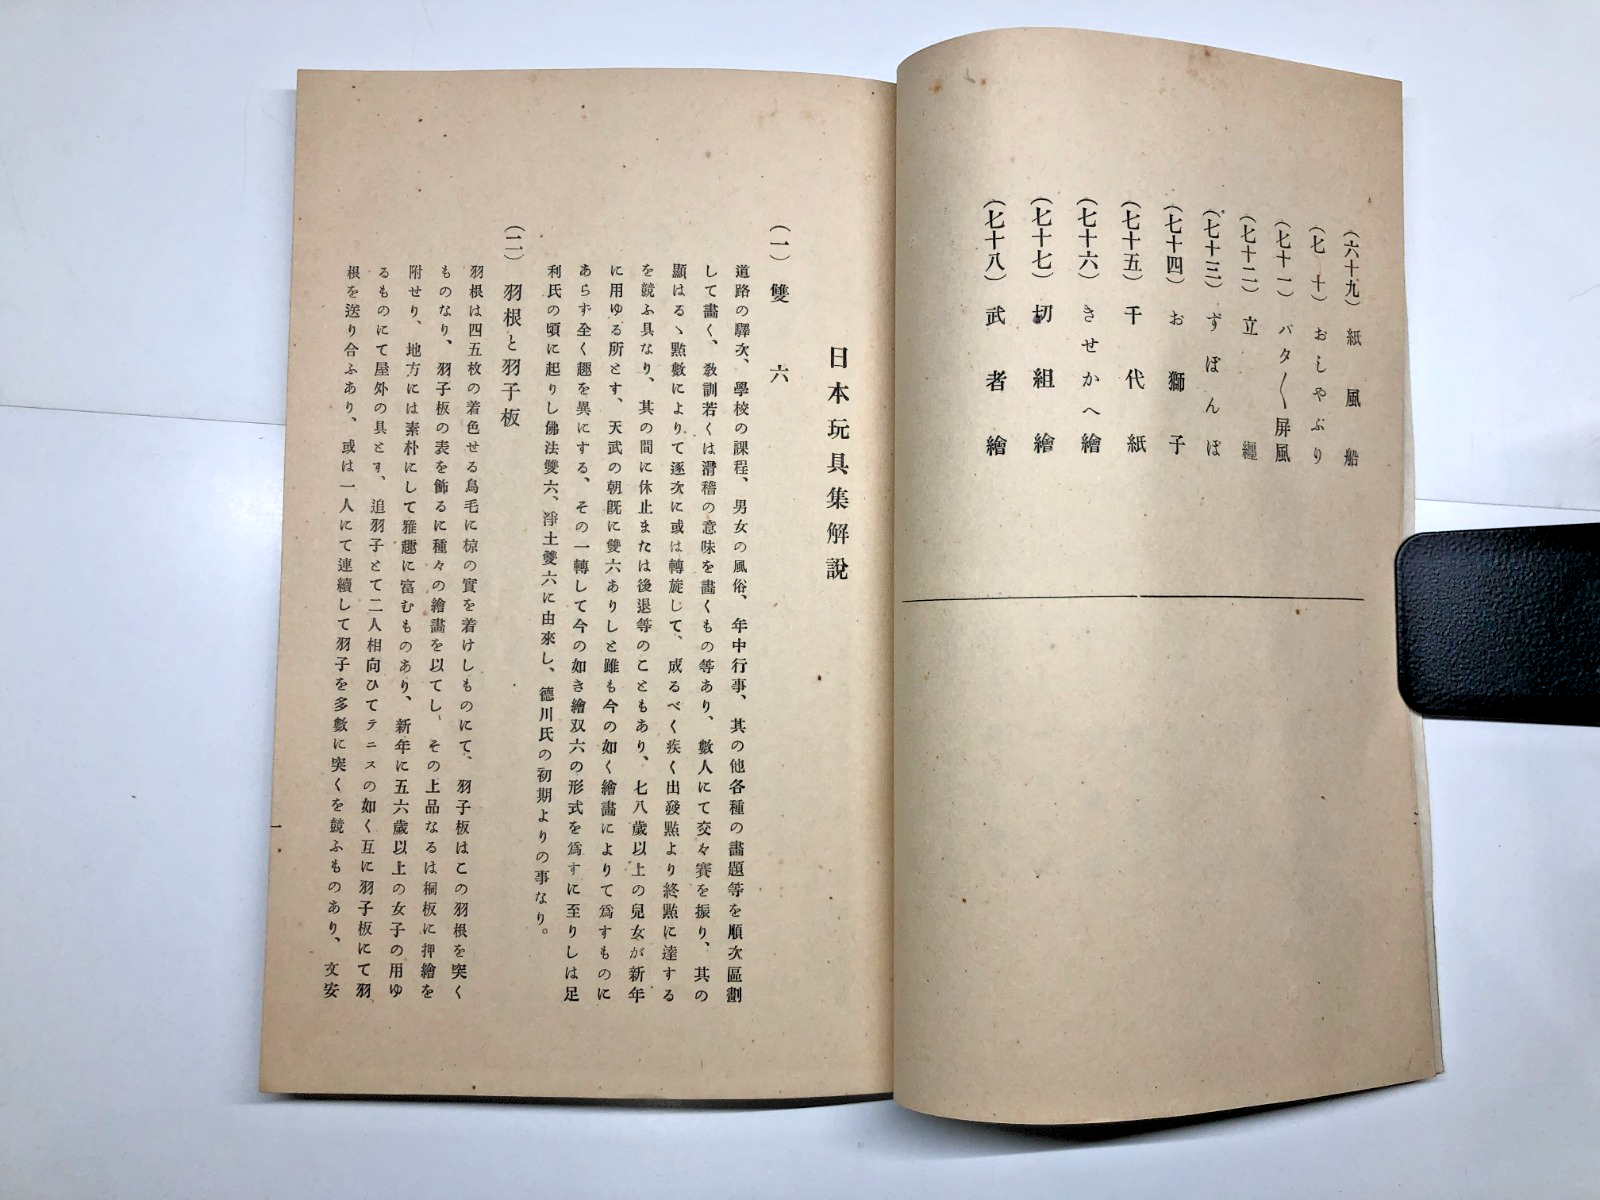 (六十九) 紙風船
(七十) おしやぶり
(七十一) バタ〳〵屏風
(七十二) 立經
(七十三) ずぼんぼ
(七十四) お獅子
(七十五) 千代紙
(七十六) きせかへ繪
(七十七) 切組繪
(七十八) 武者繪
日本玩具集解說
(一) 雙六
道路の驛次、學校の課程、男女の風俗、年中行事、其の他各種の畵題等を順次區劃
して畵く、敎訓若くは滑稽の意味を畵くもの等あり、數人にて交々賽を振り、其の
顯はるゝ點數によりて逐次に或は轉旋して、成るべく疾く出發點より終點に達する
を競ふ具なり、其の間に休止または後退等のこともあり、七八歲以上の兒女が新年
に用ゆる所とす、天武の朝旣に雙六ありしと雖も今の如く繪畵によりて爲すものに
あらず全く趣を異にする、その一轉して今の如き繪双六の形式を爲すに至りしは足
利氏の頃に起りし佛法雙六、淨土雙六に由來し、德川氏の初期よりの事なり。
(二) 羽根と羽子板
羽根は四五枚の着色せる鳥毛に椋の實を着けしものにて、羽子板はこの羽根を突く
ものなり、羽子板の表を飾るに種々の繪畵を以てし、その上品なるは桐板に押繪を
附せり、地方には素朴にして雅趣に富むものあり、新年に五六歲以上の女子の用ゆ
るものにて屋外の具とす、追羽子とて二人相向ひてテニスの如く互に羽子板にて羽
根を送り合ふあり、或は一人にて連續して羽子を多數に突くを競ふものあり、文安
一